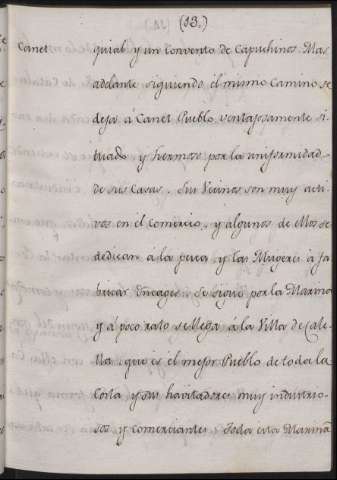 (13.)
Canet quial y un convento de Capuchinos. Mas
adelante siguiendo el mismo Camino se
deja à Canet Pueblo ventajosamente si-
tuado y hermoso por la uniformidad
de sus Casas. Sus Vecinos son muy acti-
vos en el Comercio, y algunos de ellos se
dedican à la pesca, y las Mugeres à fa-
bricar Encages. Se sigue por la Marina
y á poco rato se llega á la Villa de Cale-
lla que es el mejor Pueblo de toda la
Costa y sus havitadores muy industrio-
sos y comerciantes. Toda esta Marina